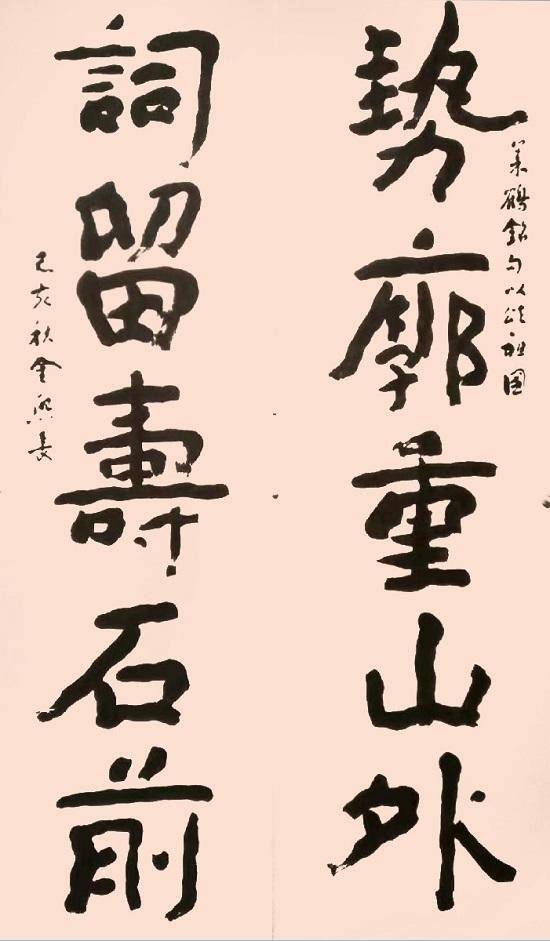 勢廓重山外
集鶴銘句以頌祖國
詞留壽石前
己亥秋金熙長